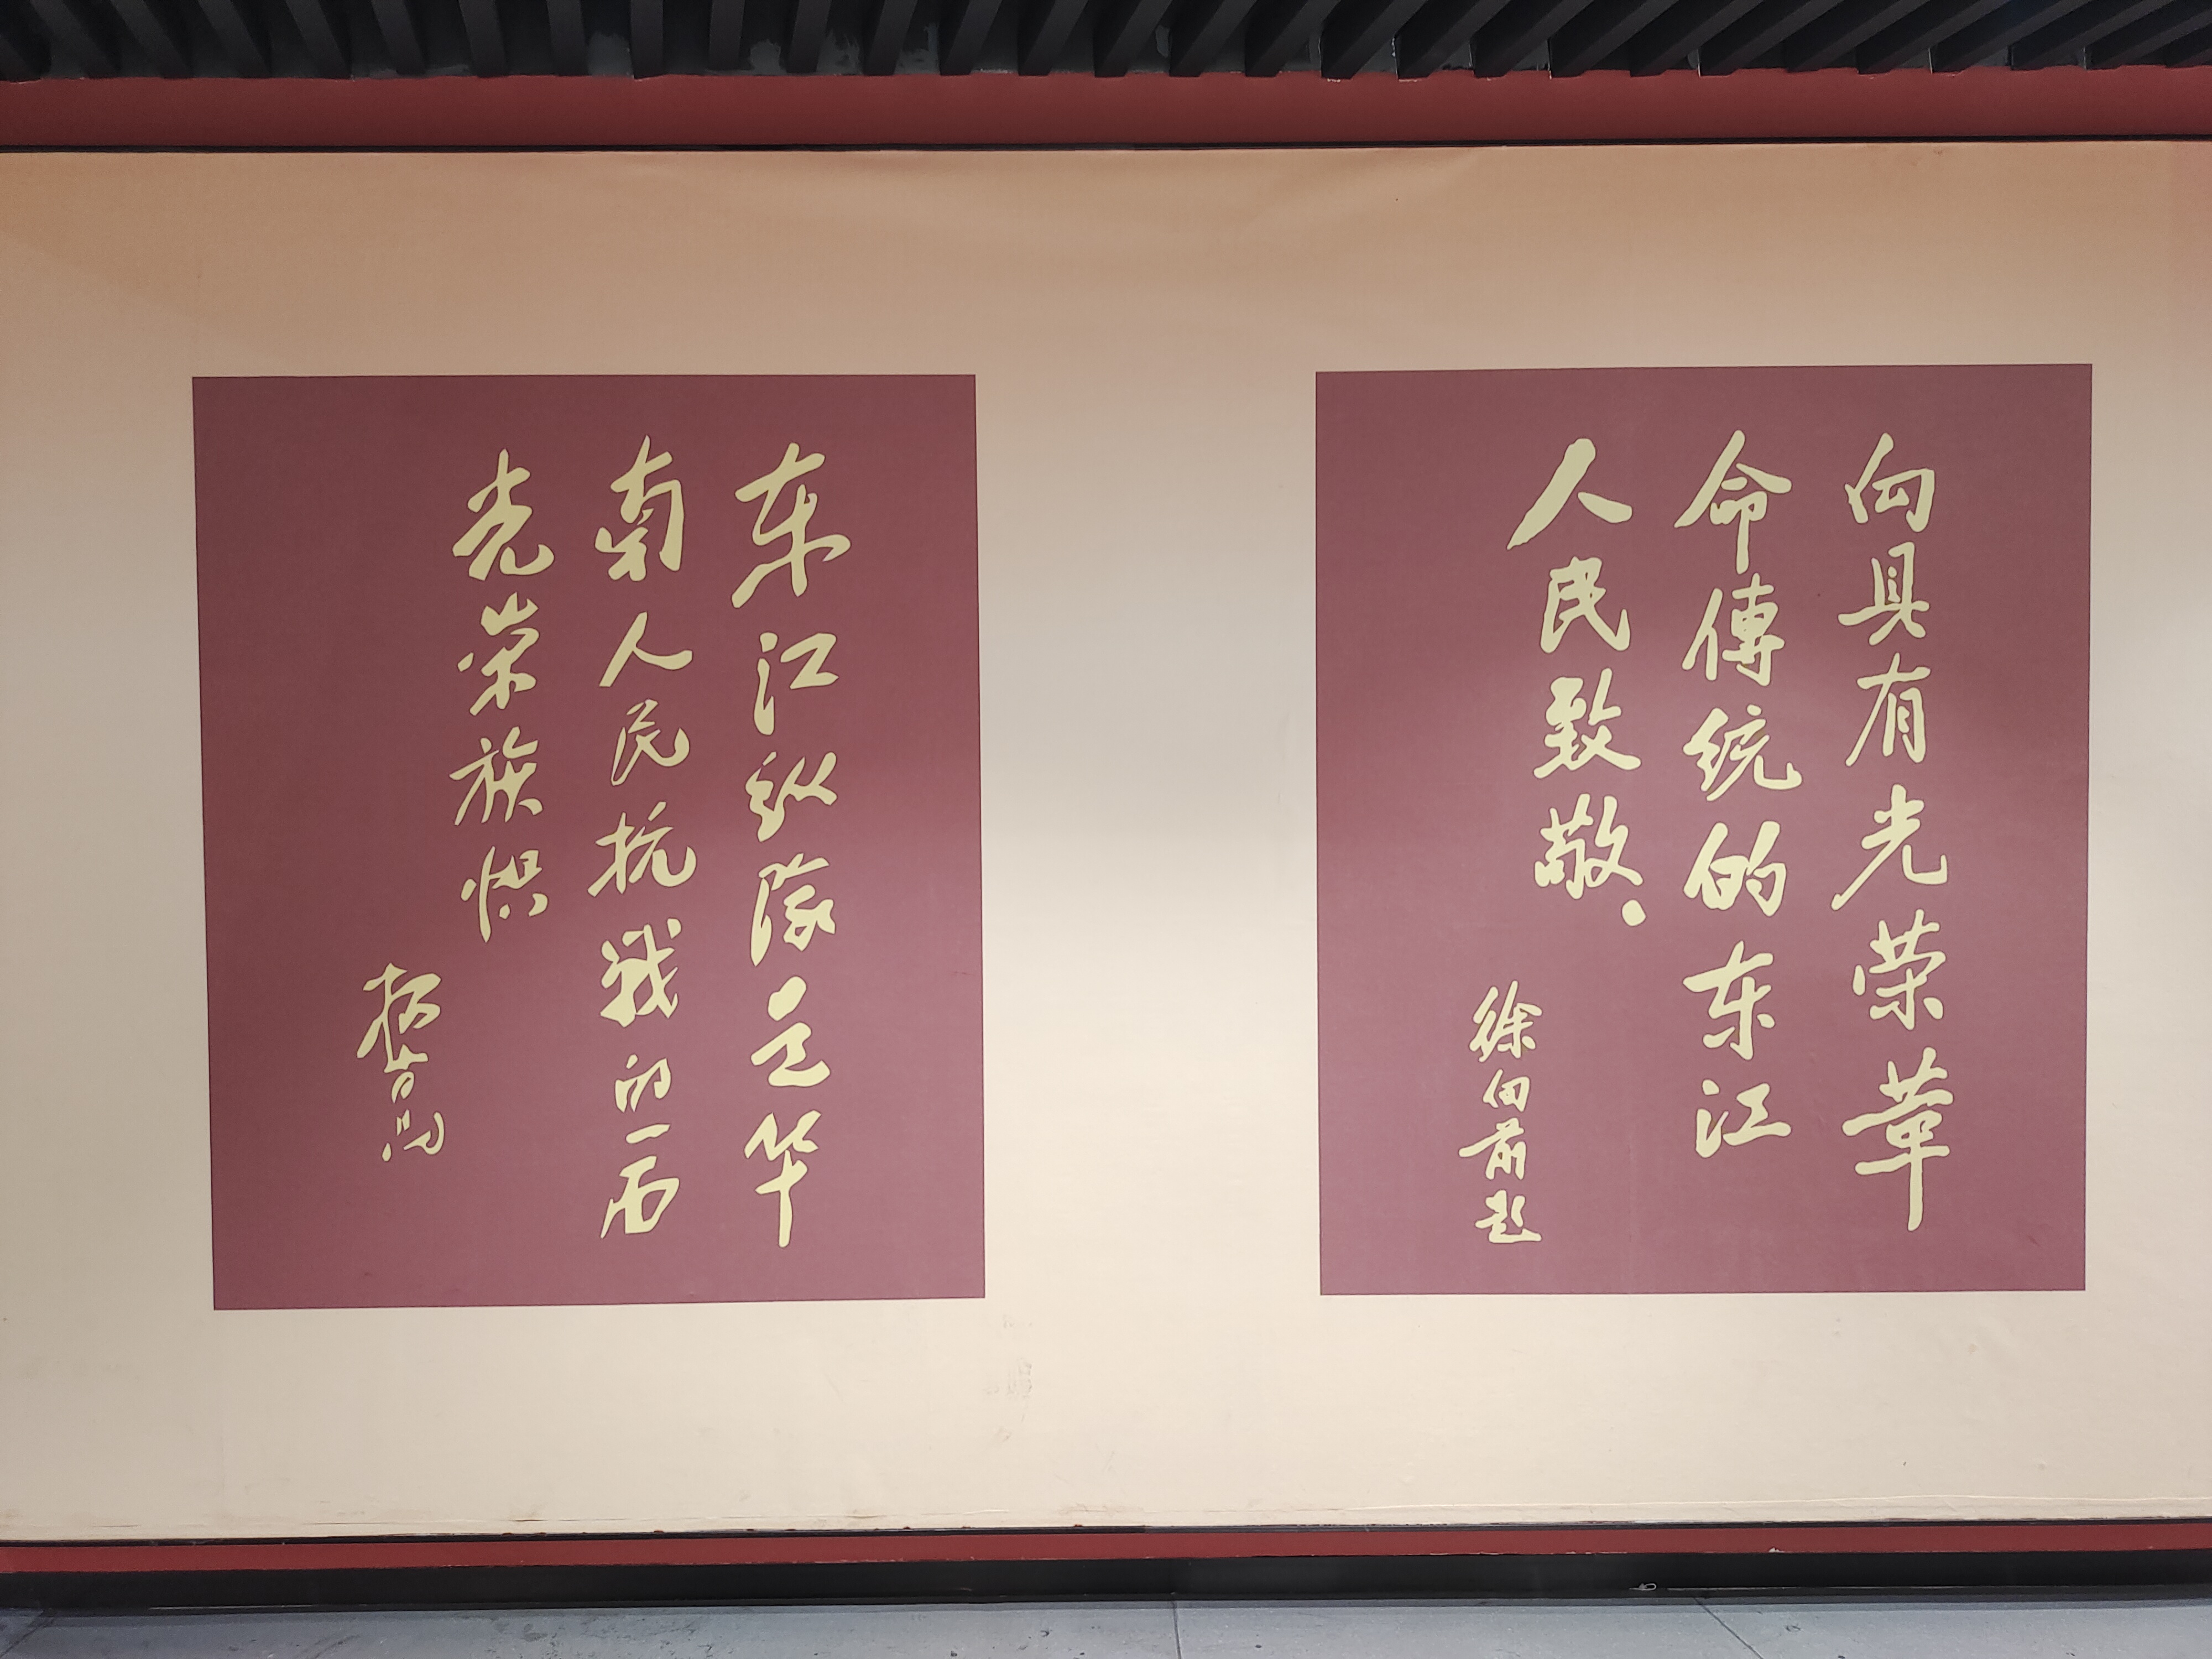 向具有光荣革
命傳统的东江
人民致敬.
徐向前题
东江纵隊是华
南人民抗战的一面
光荣旗帜